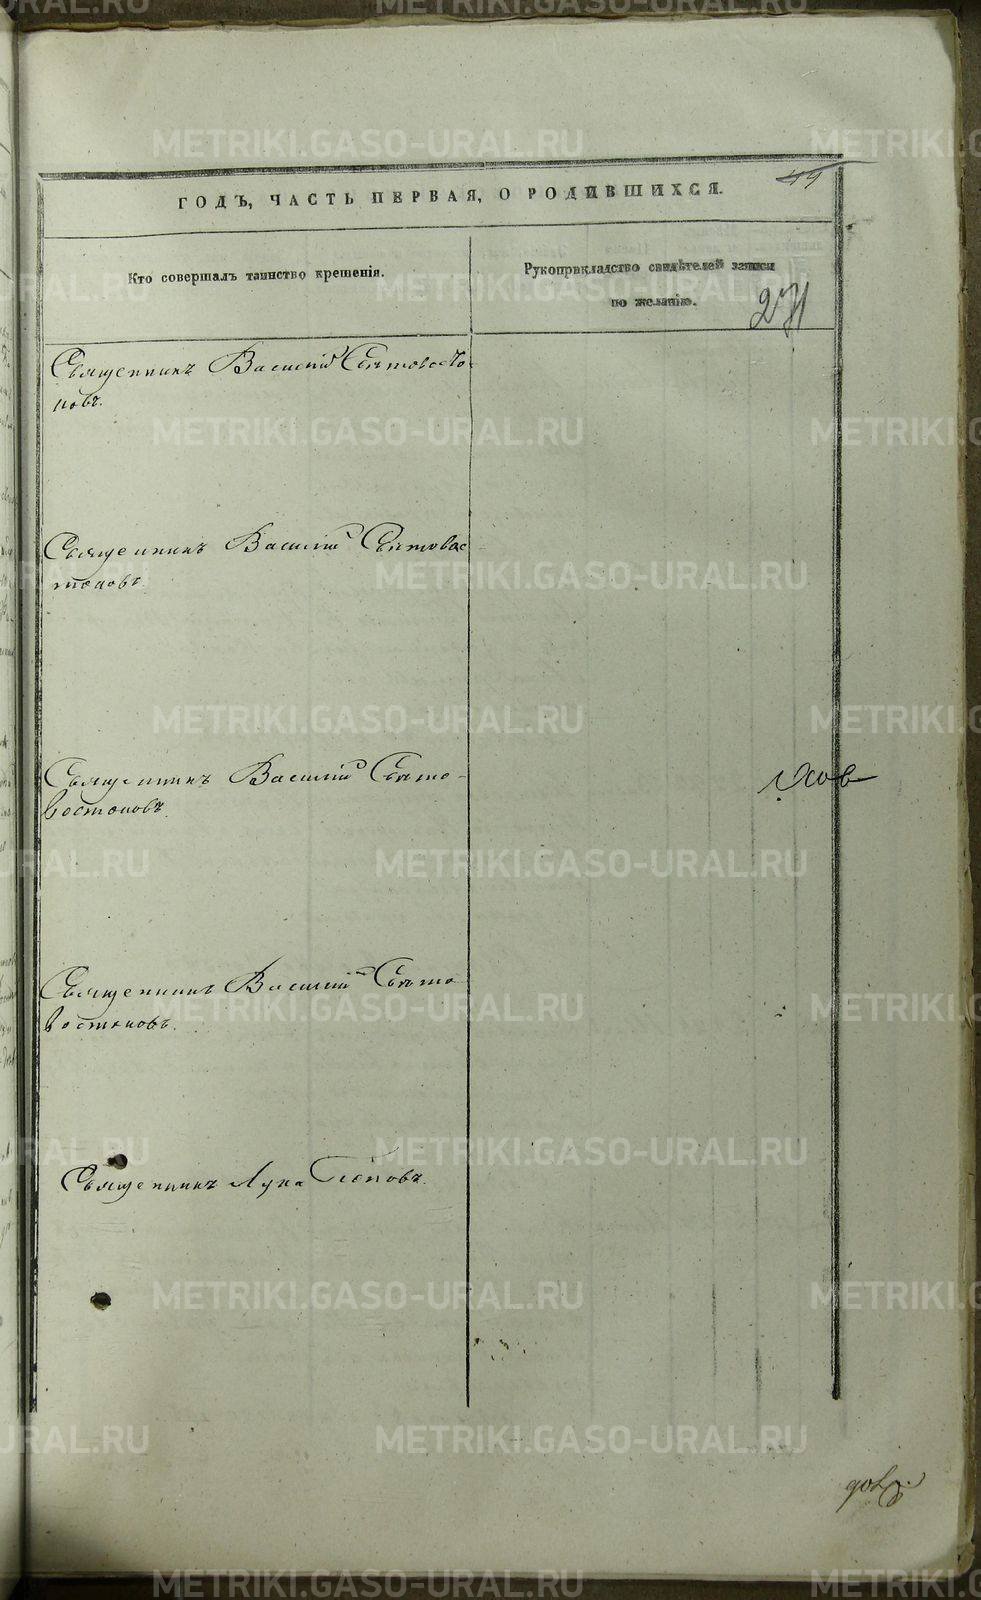 49
ГОДЪ, ЧАСТЬ ПЕРВАЯ, О РОДИВШИХСЯ.
Кто совершалъ таинство крещенія.
Рукоприкладство свидѣтелей записи
по желанію.
271
Священникъ Василій Святовосто-
новъ.
Священникъ Василій Святовос
тоновъ.
Священникъ Василій Свято-
востоновъ.
Священникъ Василій Свято
востоновъ.
Священникъ Лука Поповъ.
METRIKI.GASO-URAL.RU